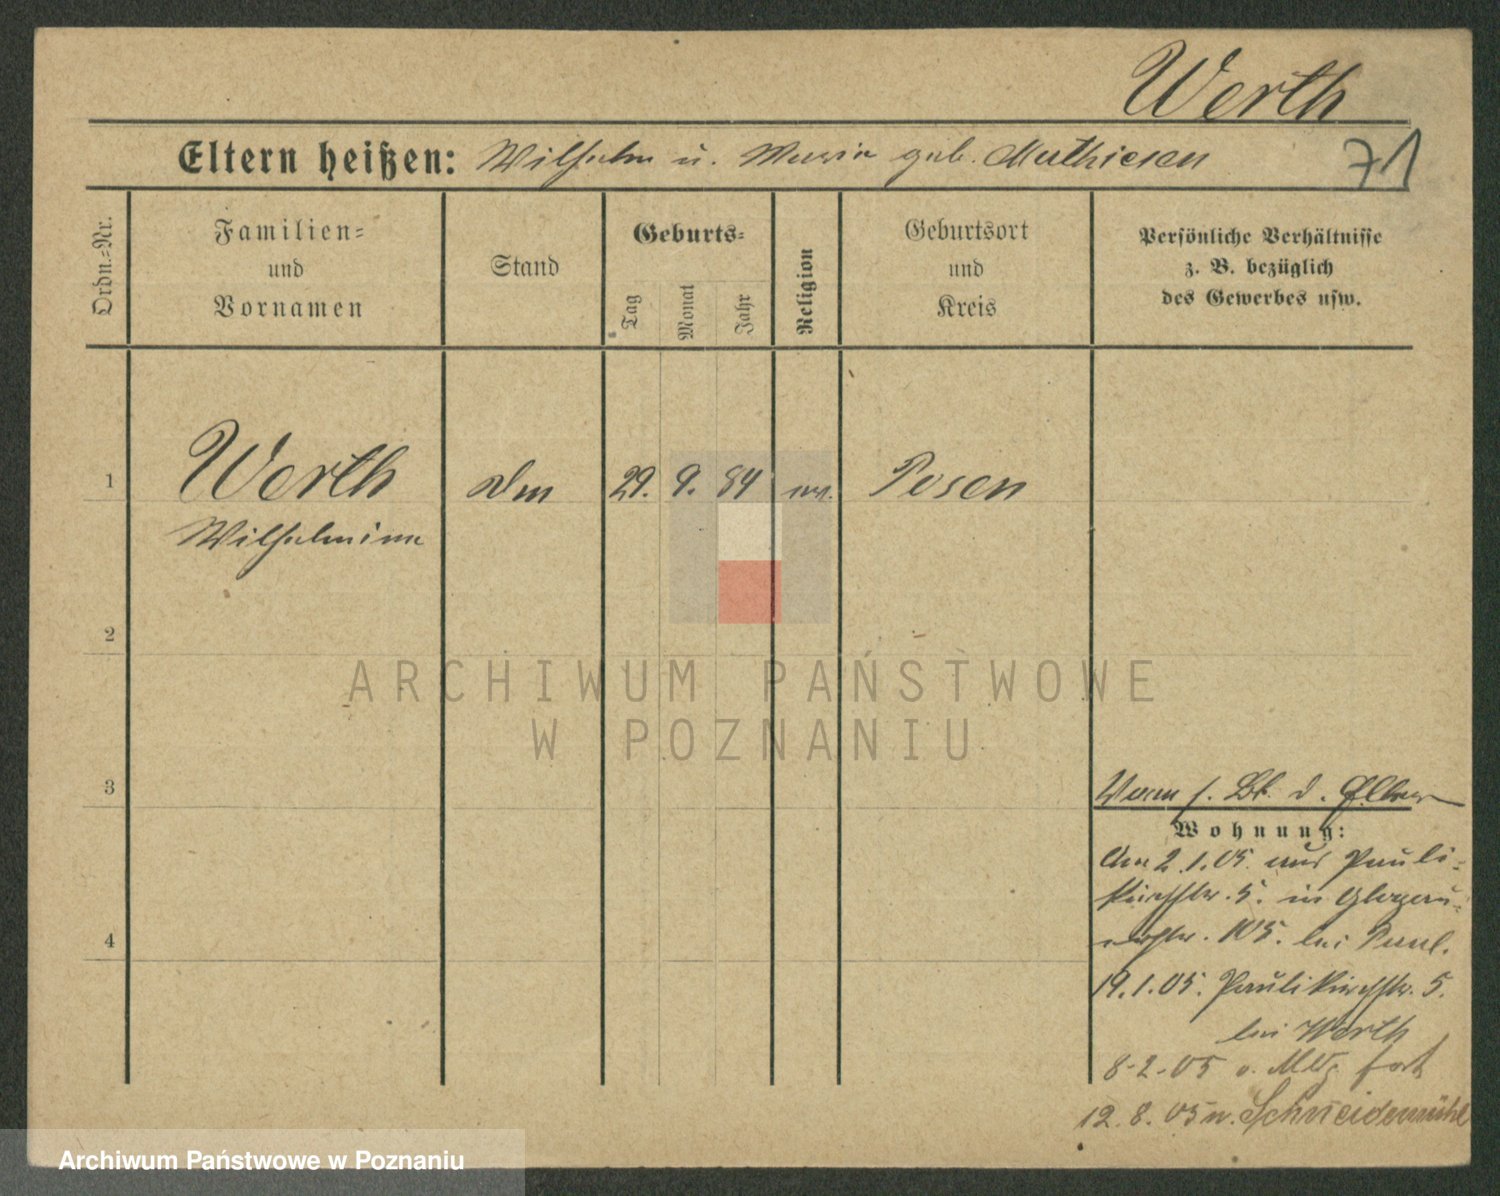 Werth
Eltern heißen: Wilhelm u. Maria geb. Mathiesen
71
Ordn.=Nr.
Familien=
und
Vornamen
Stand
Geburts=
Tag
Monat
Jahr
Religion
Geburtsort
und
Kreis
Persönliche Verhältnisse
z. B. bezüglich
des Gewerbes usw.
1
Werth
29. 9. 84
Posen
Wilhelmine
2
3
Vorm. s. Bl. d. Eltern
Wohnung:
Am 2.1.05. aus Pauli=
kirchstr. 5. in Glogau=
erstr. 105. bei Paul.
19.1.05. Paulikirchstr. 5.
bei Werth
8-2-05 o. Mldg fort
12. 8. 05 n. Schneidemühl
4
ARCHIWUM PAŃSTWOWE
W POZNANIU
Archiwum Państwowe w Poznaniu